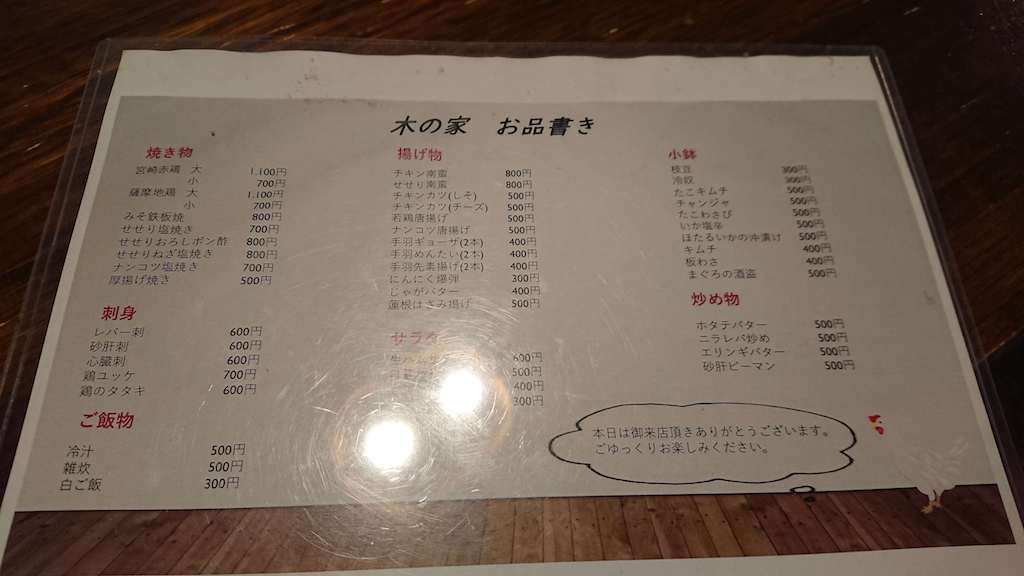 木の家 お品書き
焼き物
宮崎赤鶏 大 1,100円
小 700円
薩摩地鶏 大 1,100円
小 700円
みそ鉄板焼 800円
せせり塩焼き 700円
せせりおろしポン酢 800円
せせりねぎ塩焼き 800円
ナンコツ塩焼き 700円
厚揚げ焼き 500円
刺身
レバー刺 600円
砂肝刺 600円
心臓刺 600円
鶏ユッケ 700円
鶏のタタキ 600円
ご飯物
冷汁 500円
雑炊 500円
白ご飯 300円
揚げ物
チキン南蛮 800円
せせり南蛮 800円
チキンカツ(しそ) 500円
チキンカツ(チーズ) 500円
若鶏唐揚げ 500円
ナンコツ唐揚げ 500円
手羽ギョーザ(2本) 400円
手羽めんたい(2本) 400円
手羽先素揚げ(2本) 400円
にんにく爆弾 300円
じゃがバター 400円
蓮根はさみ揚げ 500円
サラダ
600円
500円
400円
300円
小鉢
枝豆 300円
冷奴 300円
たこキムチ 500円
チャンジャ 500円
たこわさび 500円
いか塩辛 500円
ほたるいかの沖漬け 500円
キムチ 400円
板わさ 400円
まぐろの酒盗 500円
炒め物
ホタテバター 500円
ニラレバ炒め 500円
エリンギバター 500円
砂肝ピーマン 500円
本日は御来店頂きありがとうございます。
ごゆっくりお楽しみください。